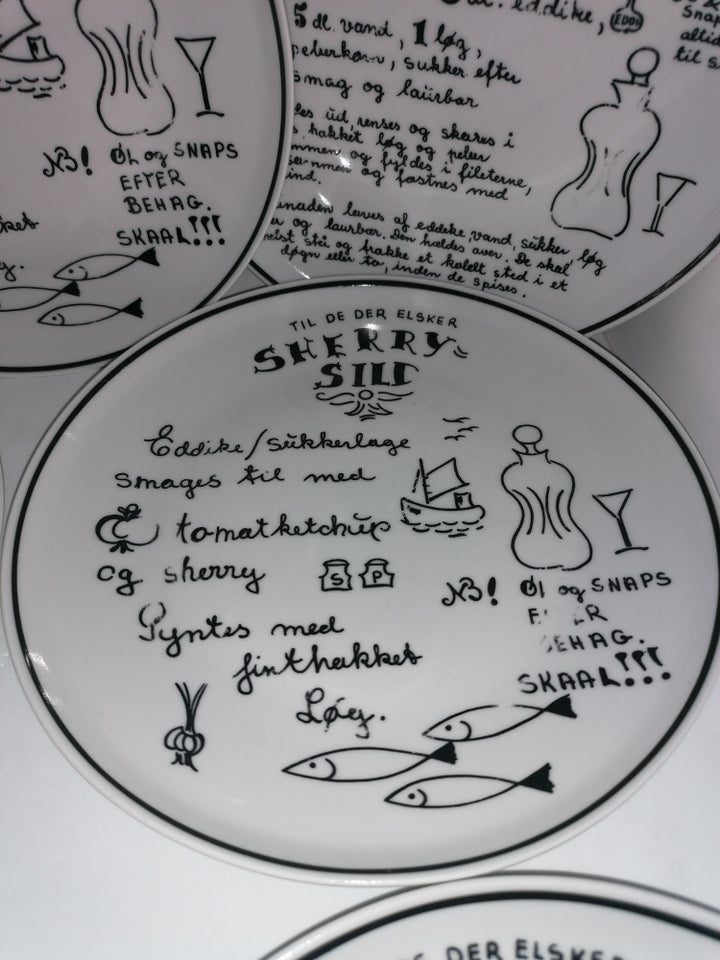 NB! Øl og SNAPS
EFTER
BEHAG.
SKAAL!!!
eddike,
EDDI
5 dl. vand, 1 løg,
peberkorn, sukker efter
smag og laurbær
ud, renses og skæres i
hakket løg og peber
og fyldes i fileterne,
og fæstnes med
laves af eddike, vand, sukker, løg
og laurbær. Den hældes over. De skal
stå og trække et koldt sted i et
døgn eller to, inden de spises.
altid
til
TIL DE DER ELSKER
SHERRY
SILD
Eddike/sukkerlage
smages til med
tomatketchup
og sherry
S P
Pyntes med
finthakket
Løg.
NB! Øl og SNAPS
BEHAG.
SKAAL!!!
DER ELSKER